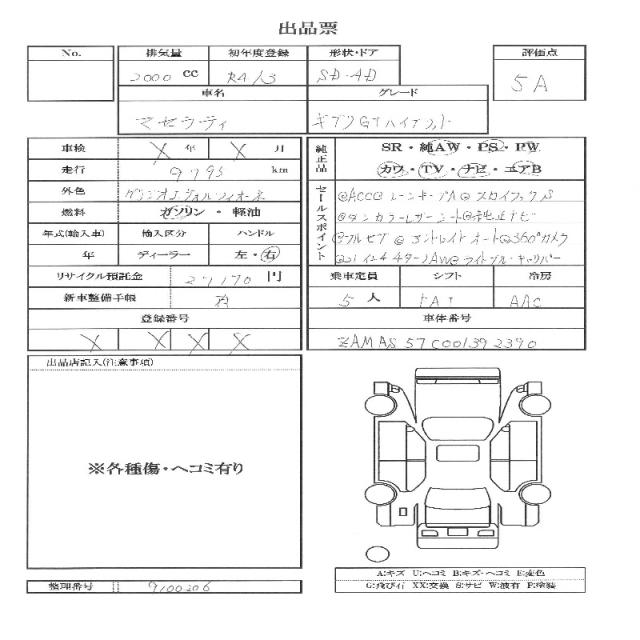 出品票
No. 排気量 初年度登録 形状・ドア 評価点
2000 cc R4/3 SD・4D 5A
車名 グレード
マセラティ ギブリGTハイブリット
車検 X 年 X 月
走行 9795 km
外色
燃料 ガソリン・軽油
年式(輸入車) 輸入区分 ハンドル
年 ディーラー 左・右
リサイクル預託金 27170 円
新車整備手帳 有
登録番号
X X X X
純正品 SR・純AW・PS・PW
カワ・TV・ナビ・エアB
セールスポイント
@ACC@レーンキープA@スカイフック
@タンカラーレザーシート@純正ナビ
@フルセグ@ @360°カメラ
乗車定員 シフト 冷房
5 人 FAT AAC
車体番号
ZAMAS57C001392390
出品店記入(注意事項)
※各種傷・ヘコミ有り
整理番号 9100206
A:キズ U:ヘコミ B:キズ・ヘコミ E:変色
G:飛び石 XX:交換 S:サビ W:波有 P:塗装